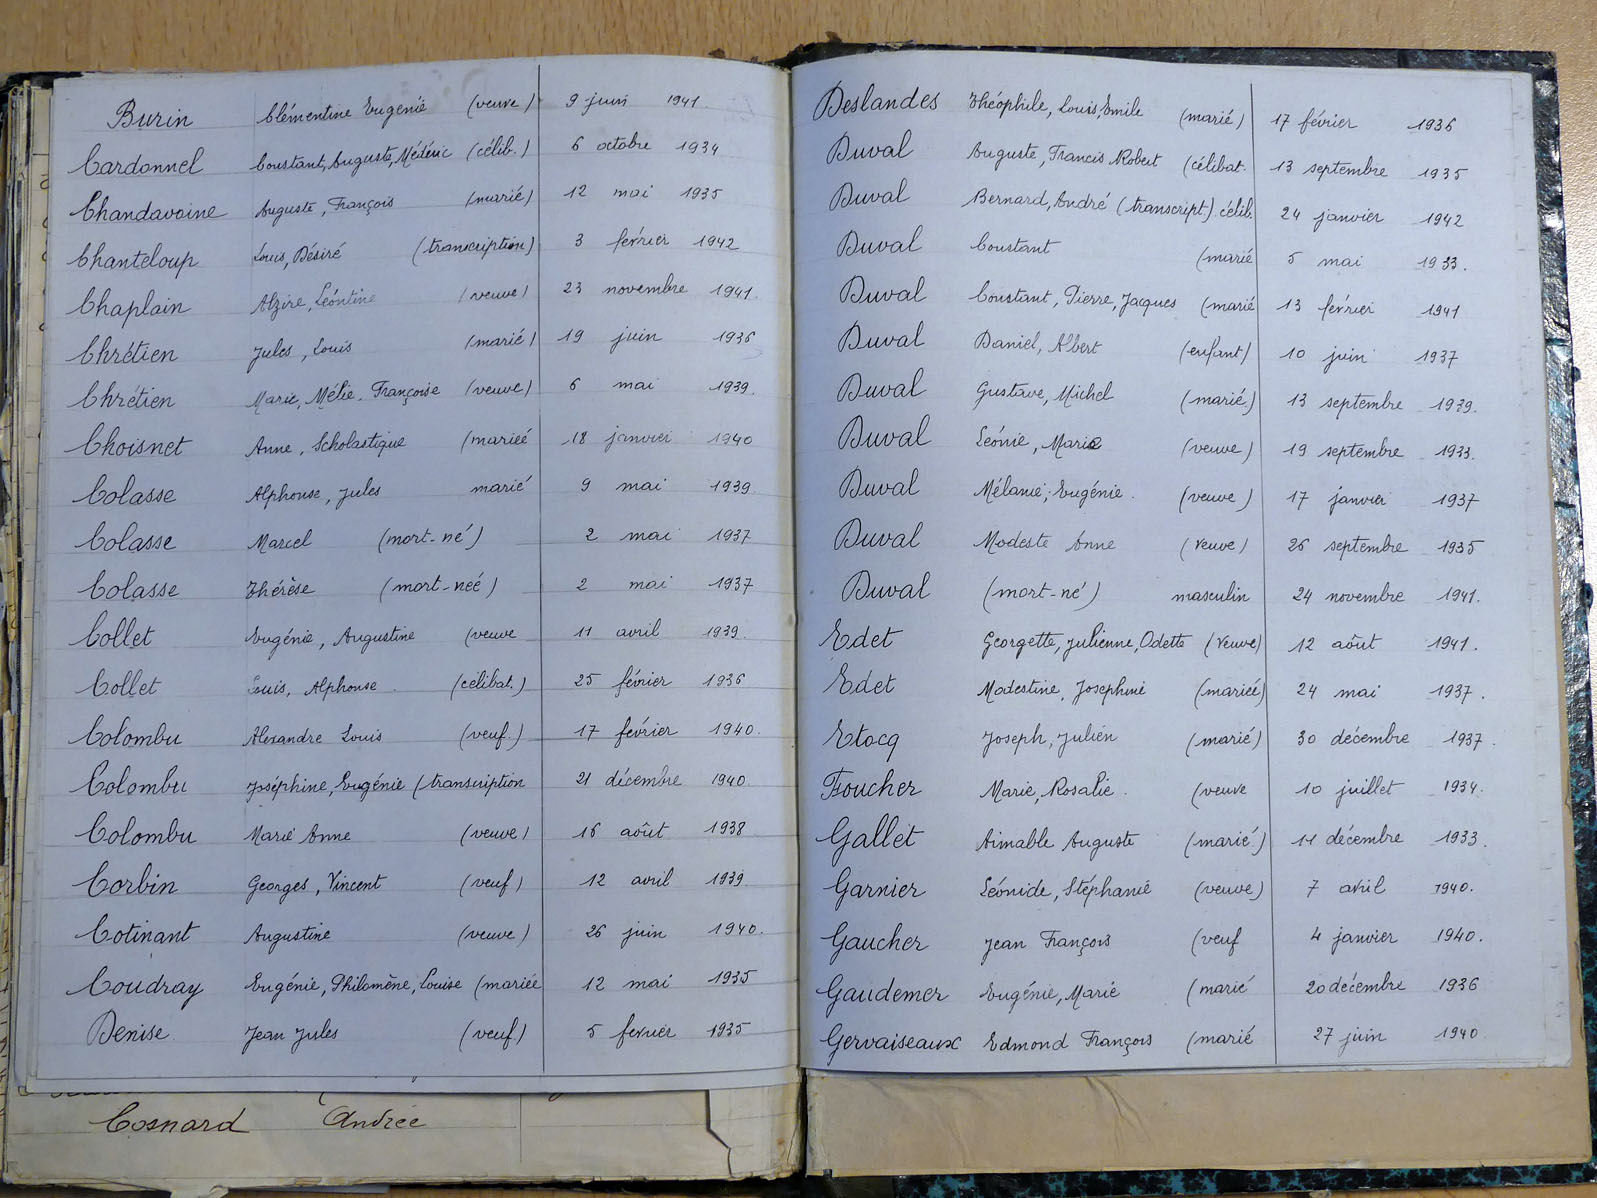 Burin Clémentine Eugénie (veuve) 9 juin 1941.
Cardonnel Constant, Auguste, Médéric (célib.) 6 octobre 1934
Chandavoine Auguste, François (marié) 12 mai 1935
Chanteloup Louis, Désiré (transcription) 3 février 1942
Chaplain Alzire, Léontine (veuve) 23 novembre 1941.
Chrétien Jules, Louis (marié) 19 juin 1936
Chrétien Marie, Mélie, Françoise (veuve) 6 mai 1939.
Choisnet Anne, Scholastique (mariée 18 janvier 1940
Colasse Alphonse, Jules marié 9 mai 1939
Colasse Marcel (mort-né) 2 mai 1937
Colasse Thérèse (mort-née) 2 mai 1937.
Collet Eugénie, Augustine (veuve 11 avril 1939.
Collet Louis, Alphonse. (célibat.) 25 février 1936
Colombu Alexandre Louis (veuf.) 17 février 1940.
Colombu Joséphine, Eugénie (transcription 21 décembre 1940.
Colombu Marie Anne (veuve) 16 août 1938
Corbin Georges, Vincent (veuf) 12 avril 1939.
Cotinant Augustine (veuve) 26 juin 1940.
Coudray Eugénie, Philomène, Louise (mariée 12 mai 1935
Denise Jean Jules (veuf) 5 fevrier 1935
Cosnard Andrée
Deslandes Théophile, Louis, Emile (marié) 17 février 1936
Duval Auguste, Francis Robert (célibat. 13 septembre 1935
Duval Bernard, André (transcript.) célib. 24 janvier 1942
Duval Constant (marié 5 mai 1933.
Duval Constant, Pierre, Jacques (marié 13 février 1941
Duval Daniel, Albert (enfant) 10 juin 1937
Duval Gustave, Michel (marié.) 13 septembre 1939.
Duval Léonie, Marie (veuve) 19 septembre 1933.
Duval Mélanie, Eugénie. (veuve) 17 janvier 1937
Duval Modeste Anne (veuve) 26 septembre 1935
Duval (mort-né) masculin 24 novembre 1941.
Edet Georgette, Julienne, Odette (Veuve) 12 août 1941.
Edet Modestine, Josephine (mariée) 24 mai 1937.
Etocq Joseph, Julien (marié) 30 décembre 1937.
Foucher Marie, Rosalie. (veuve 10 juillet 1934.
Gallet Aimable Auguste (marié) 11 décembre 1933.
Garnier Léonide, Stéphanie (veuve) 7 avril 1940.
Gaucher Jean François (veuf 4 janvier 1940.
Gaudemer Eugénie, Marie (marié 20 décembre 1936
Gervaiseaux Edmond François (marié 27 juin 1940